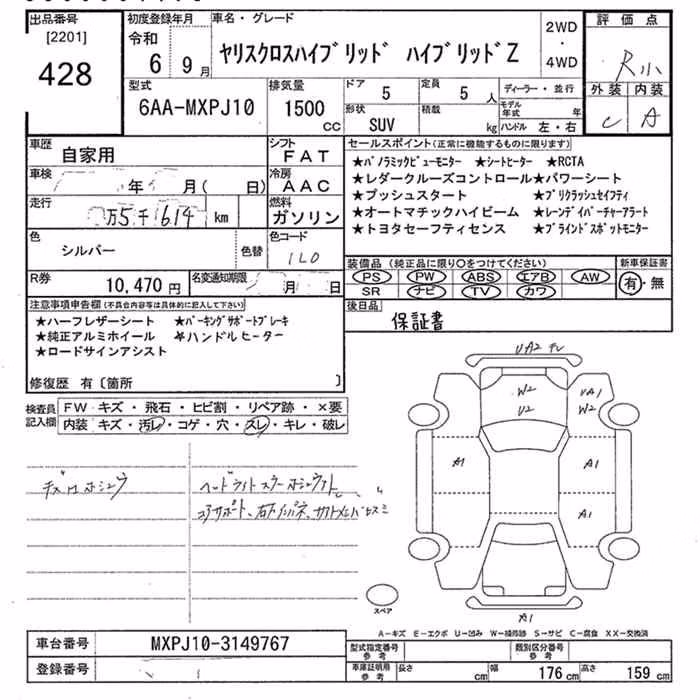 出品番号
[2201]
428
初度登録年月
令和
6 9月
車名・グレード
ヤリスクロスハイブリッド ハイブリッドZ
2WD
・
4WD
評価点
R小
外装 内装
C A
型式
6AA-MXPJ10
排気量
1500
cc
ドア
5
定員
5 人
形状
SUV
積載
kg
ディーラー・並行
モデル年式 年
ハンドル 左・右
車歴
自家用
シフト
FAT
車検
年 月( 日)
冷房
AAC
走行
万5千1614 km
燃料
ガソリン
色
シルバー
色替
色コード
1L0
R券
10,470 円
名変通知期限
月 日
セールスポイント(正常に機能するものに限ります)
★パノラミックビューモニター ★シートヒーター ★RCTA
★レダークルーズコントロール★パワーシート
★プッシュスタート ★プリクラッシュセイフティ
★オートマチックハイビーム ★レーンデイパーチャーアラート
★トヨタセーフティセンス ★ブラインドスポットモニター
装備品(純正品に限り○をつけてください)
PS PW ABS エアB AW
SR ナビ TV カワ
新車保証書
有・無
後日品
保証書
注意事項申告欄(不具合内容等は具体的に記入して下さい)
★ハーフレザーシート ★パーキングサポートブレーキ
★純正アルミホイール ★ハンドルヒーター
★ロードサインアシスト
修復歴 有〔箇所 〕
検査員記入欄
FW キズ・飛石・ヒビ割・リペア跡・×要
内装 キズ・汚レ・コゲ・穴・スレ・キレ・破レ
UA2
W2
U2
UA1
W2
A1
A1
A1
A1
スペア
A-キズ E-エクボ U-凹み W-補修跡 S-サビ C-腐食 XX-交換済
車台番号
MXPJ10-3149767
登録番号
型式指定番号
参考
類別区分番号
参考
車庫証明用
参考
長さ cm
幅 176 cm
高さ 159 cm